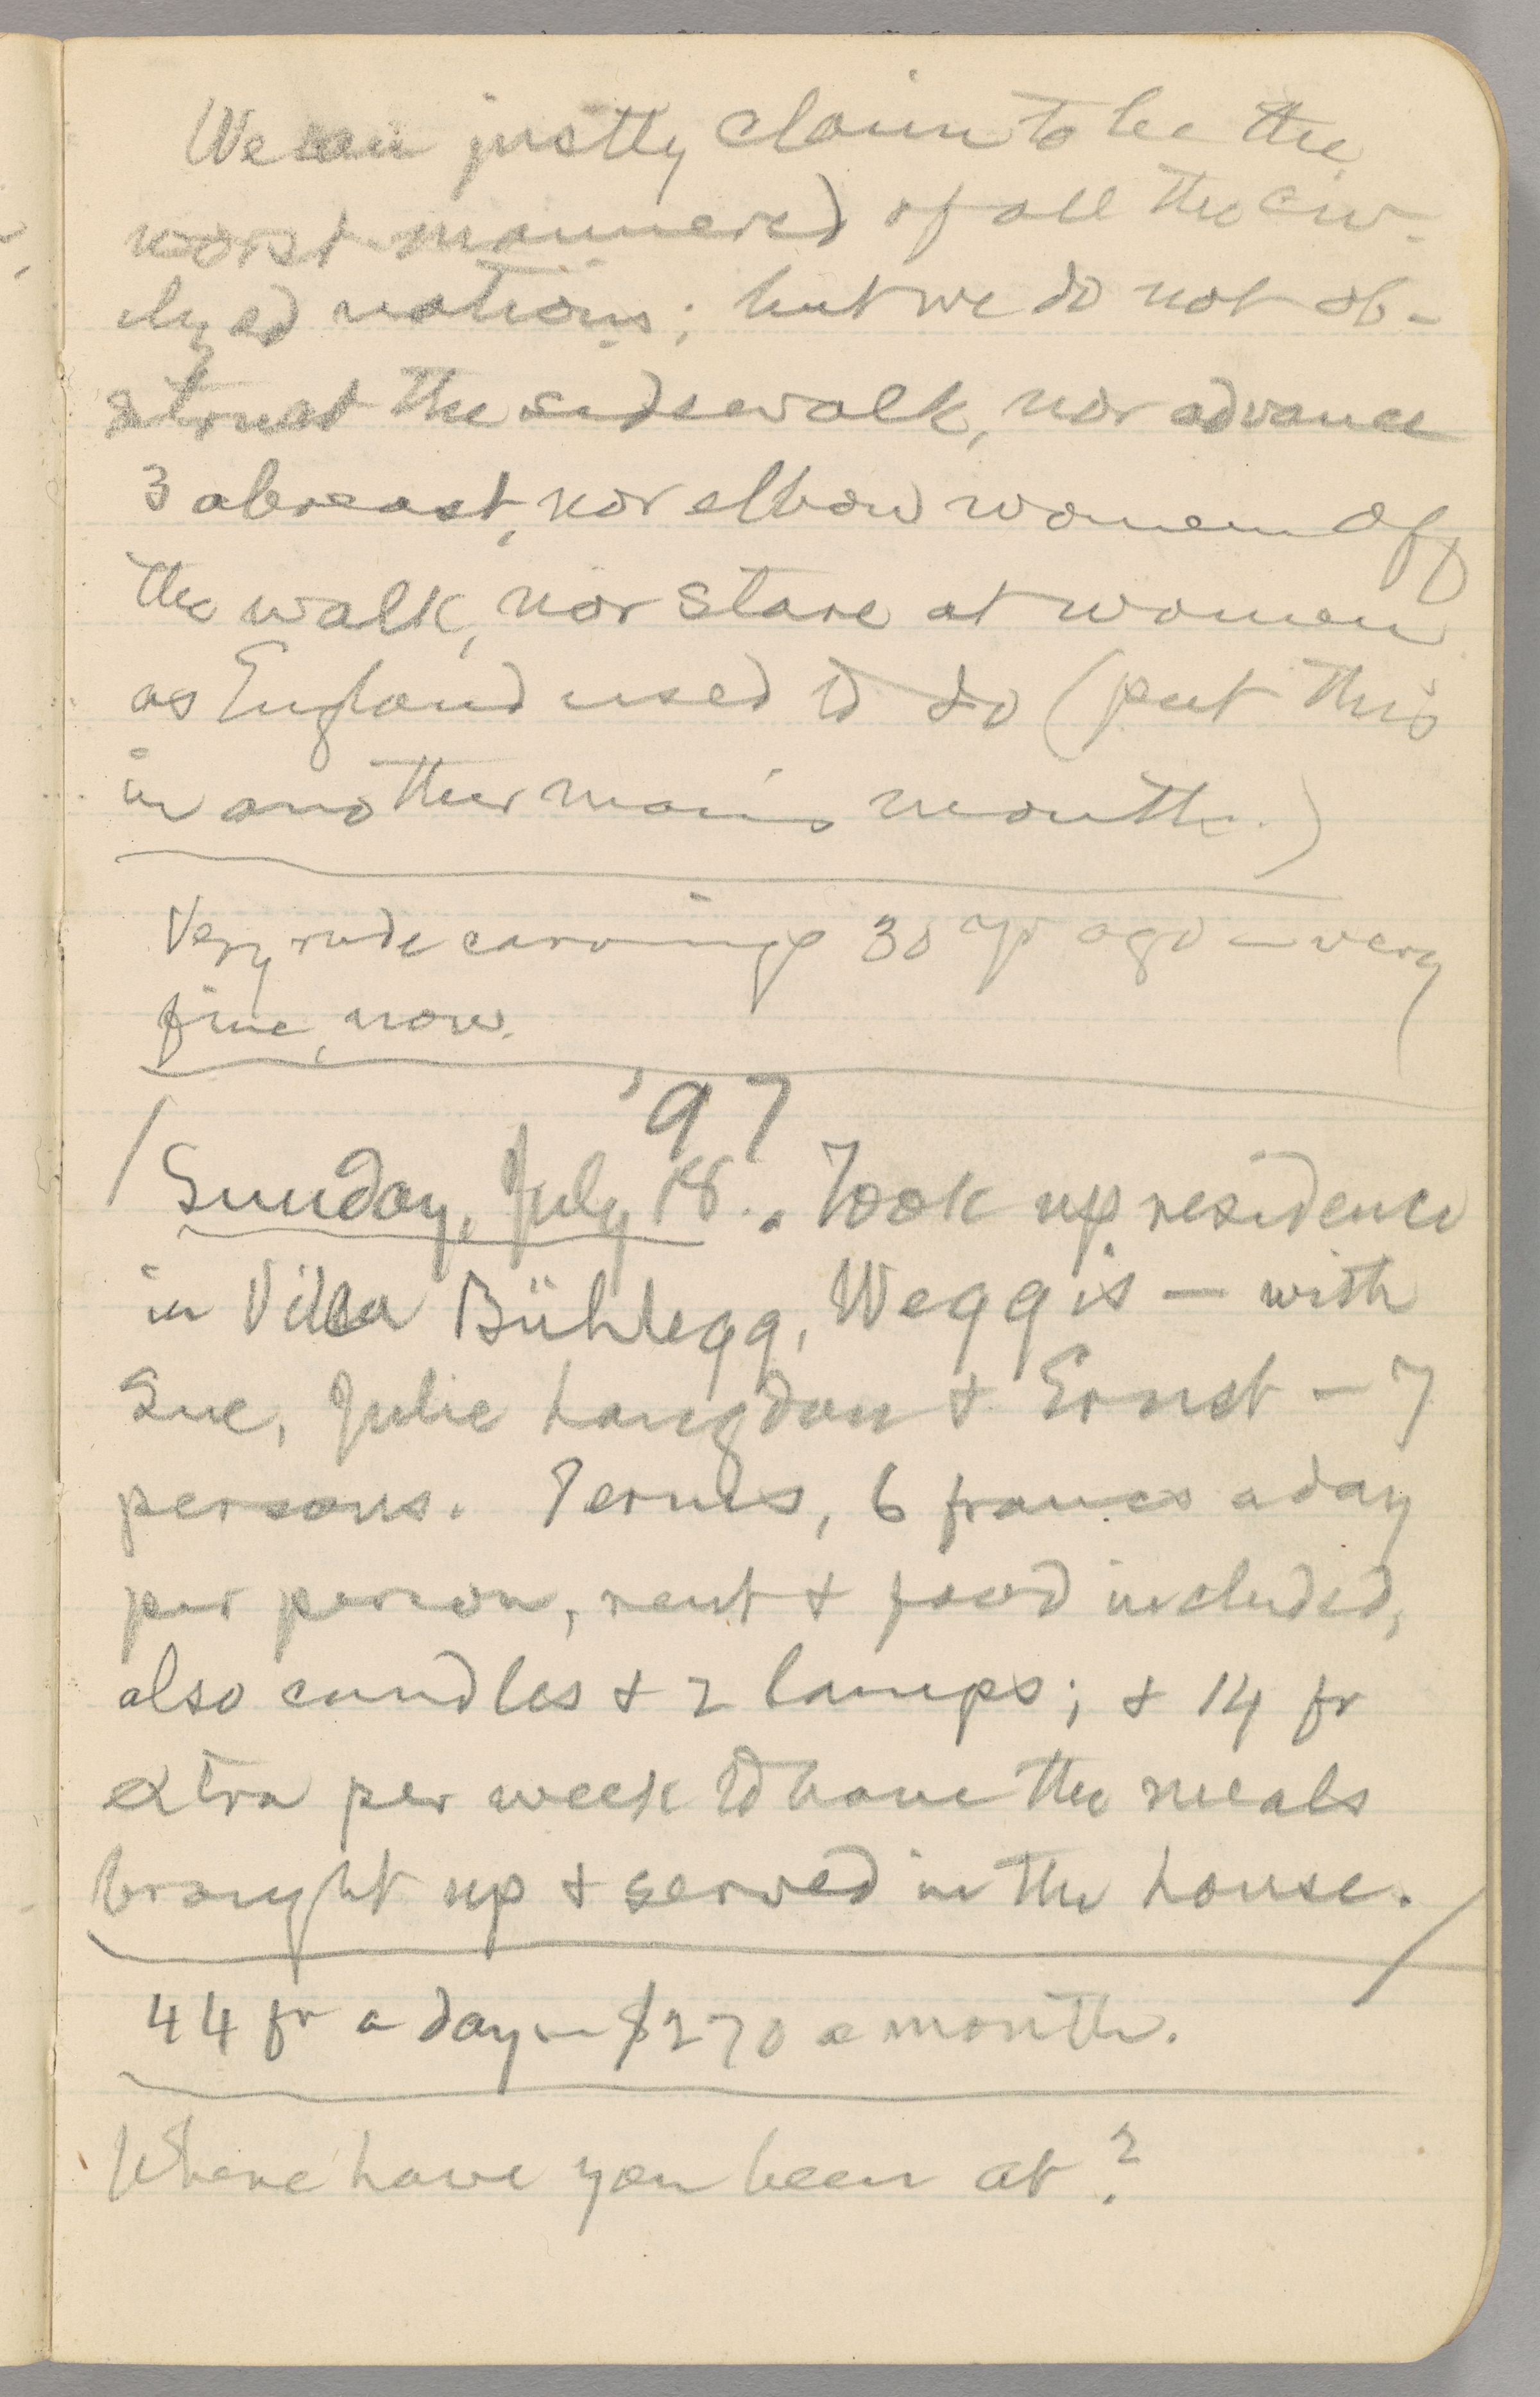 We can justly claim to be the
worst-mannered of all the civ-
ilyzed nations; but we do not ob-
struct the sidewalk, nor advance
3 abreast, nor elbow women off
the walk, nor stare at women
as England used to do (put this
in another man's mouth.)
Very rude carvings 30 yr ago — very
fine, now.
'97
Sunday, July 18. Took up residence
in Villa Bühlegg, Weggis — with
Sue, Julie Langdon & Ernst — 7
persons. Terms, 6 francs a day
per person, rent & food included,
also candles & 2 lamps; & 14 fr
extra per week to have the meals
brought up & served in the house.
44 fr a day — $270 a month.
Where have you been at?